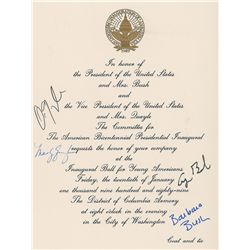 In honor of
the President of the United States
and Mrs. Bush
and
the Vice President of the United States
and Mrs. Quayle
The Committee for
The American Bicentennial Presidential Inaugural
requests the honor of your company
at the
Inaugural Ball for Young Americans
Friday, the twentieth of January
one thousand nine hundred and eighty-nine
The District of Columbia Armory
at eight o'clock in the evening
in the City of Washington
Barbara Bush
Coat and tie